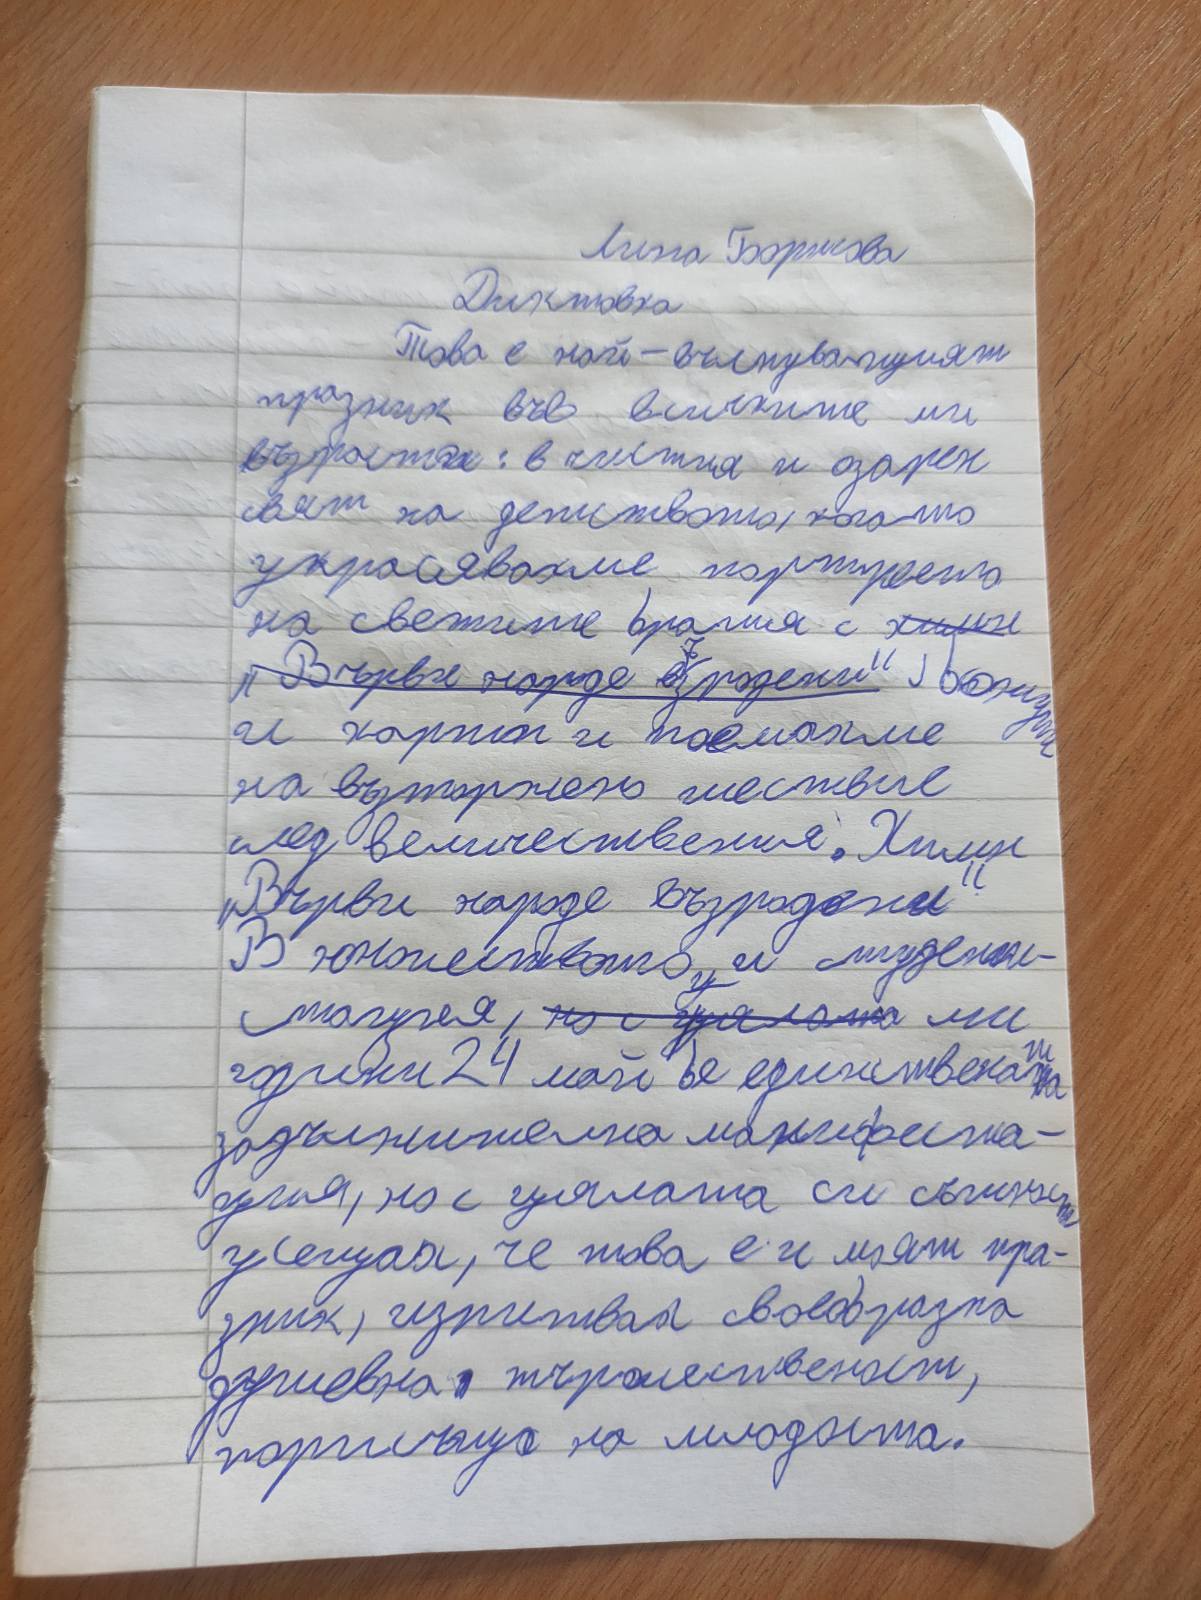 Лина Боримова
Диктовка
Това е най-вълнуващият
празник във всичките ми
възрасти: в чистия и озарен
свят на детството, когато
украсявахме портрета
на светите братя с химн
„Върви народе възродени" божури
и хартии и поемахме
на възторжено шествие
след величествения. Химн
„Върви народе възродени"
В юношеството, и студент-
стагуея, но с цялата ми
години 24 май бе единствената
задължителна манифеста-
ция, но с цялата си същност
усещах, че това е и моят пра-
зник, изпитвах своеобразна
душевна тържественост,
порисъща на младоста.